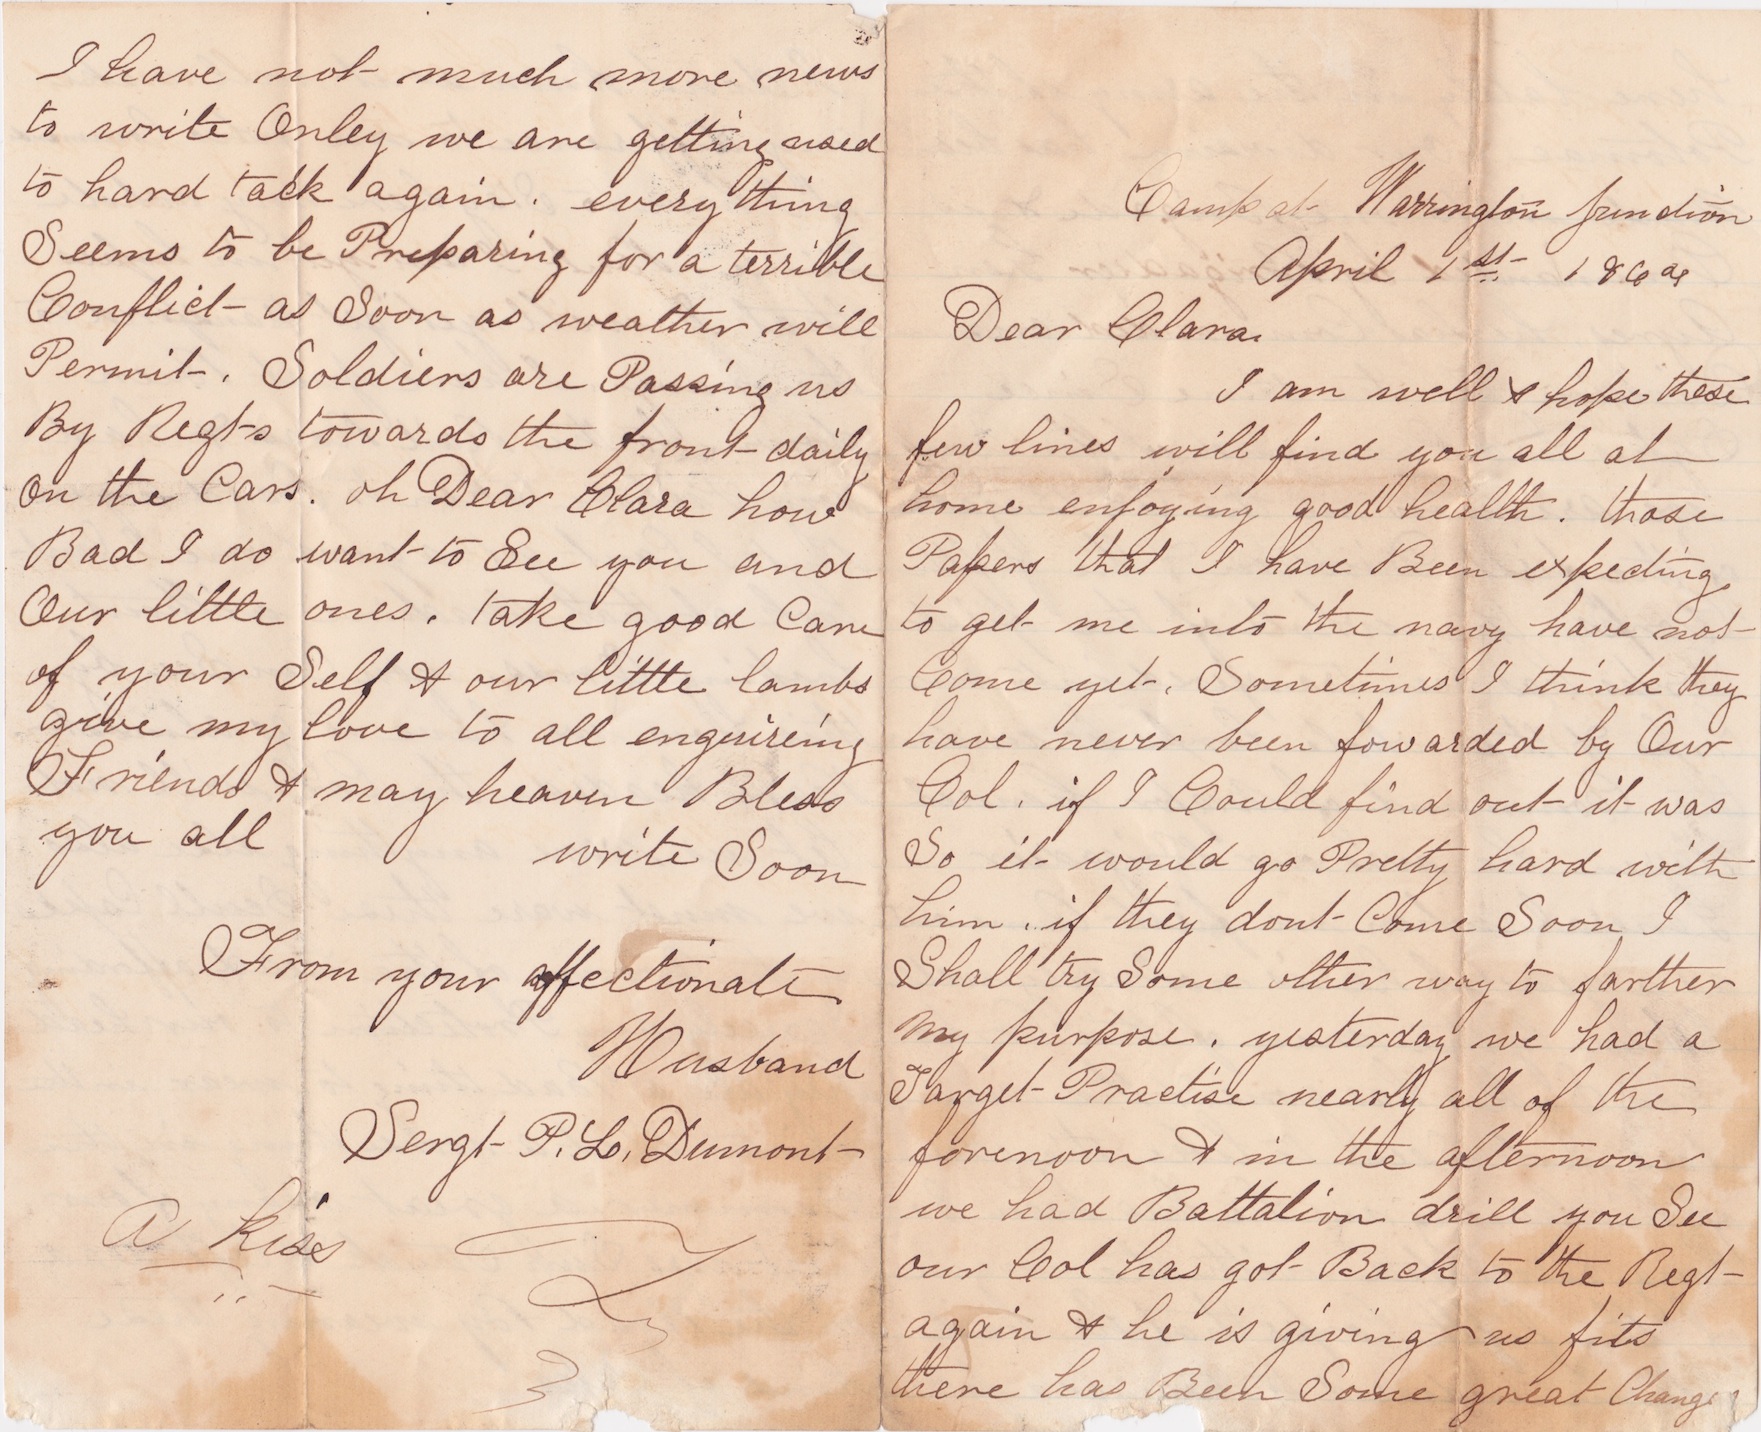 Camp at Warrington Junction
April 1st 1864
Dear Clara.
I am well & hope these
few lines will find you all at
home enjoying good health. those
Papers that I have Been expecting
to get me into the navy have not
Come yet. Sometimes I think they
have never been fowarded by Our
Col. if I Could find out it was
So it would go Pretty hard with
him. if they dont Come Soon I
Shall try Some other way to farther
my purpose. yesterday we had a
Target Practise nearly all of the
forenoon & in the afternoon
we had Battalion drill you See
our Col has got Back to the Regt
again & he is giving us fits
there has Been Some great Change
I have not much more news
to write Onley we are getting used
to hard tack again. every thing
Seems to be Preparing for a terrible
Conflict as Soon as weather will
Permit. Soldiers are Passing us
By Regts towards the front daily
on the Cars. oh Dear Clara how
Bad I do want to See you and
Our little ones. take good Care
of your Self & our little lambs
give my love to all enquireing
Friends & may heaven Bless
you all write Soon
From your affectionate
Husband
Sergt P. L. Dumont
a kiss